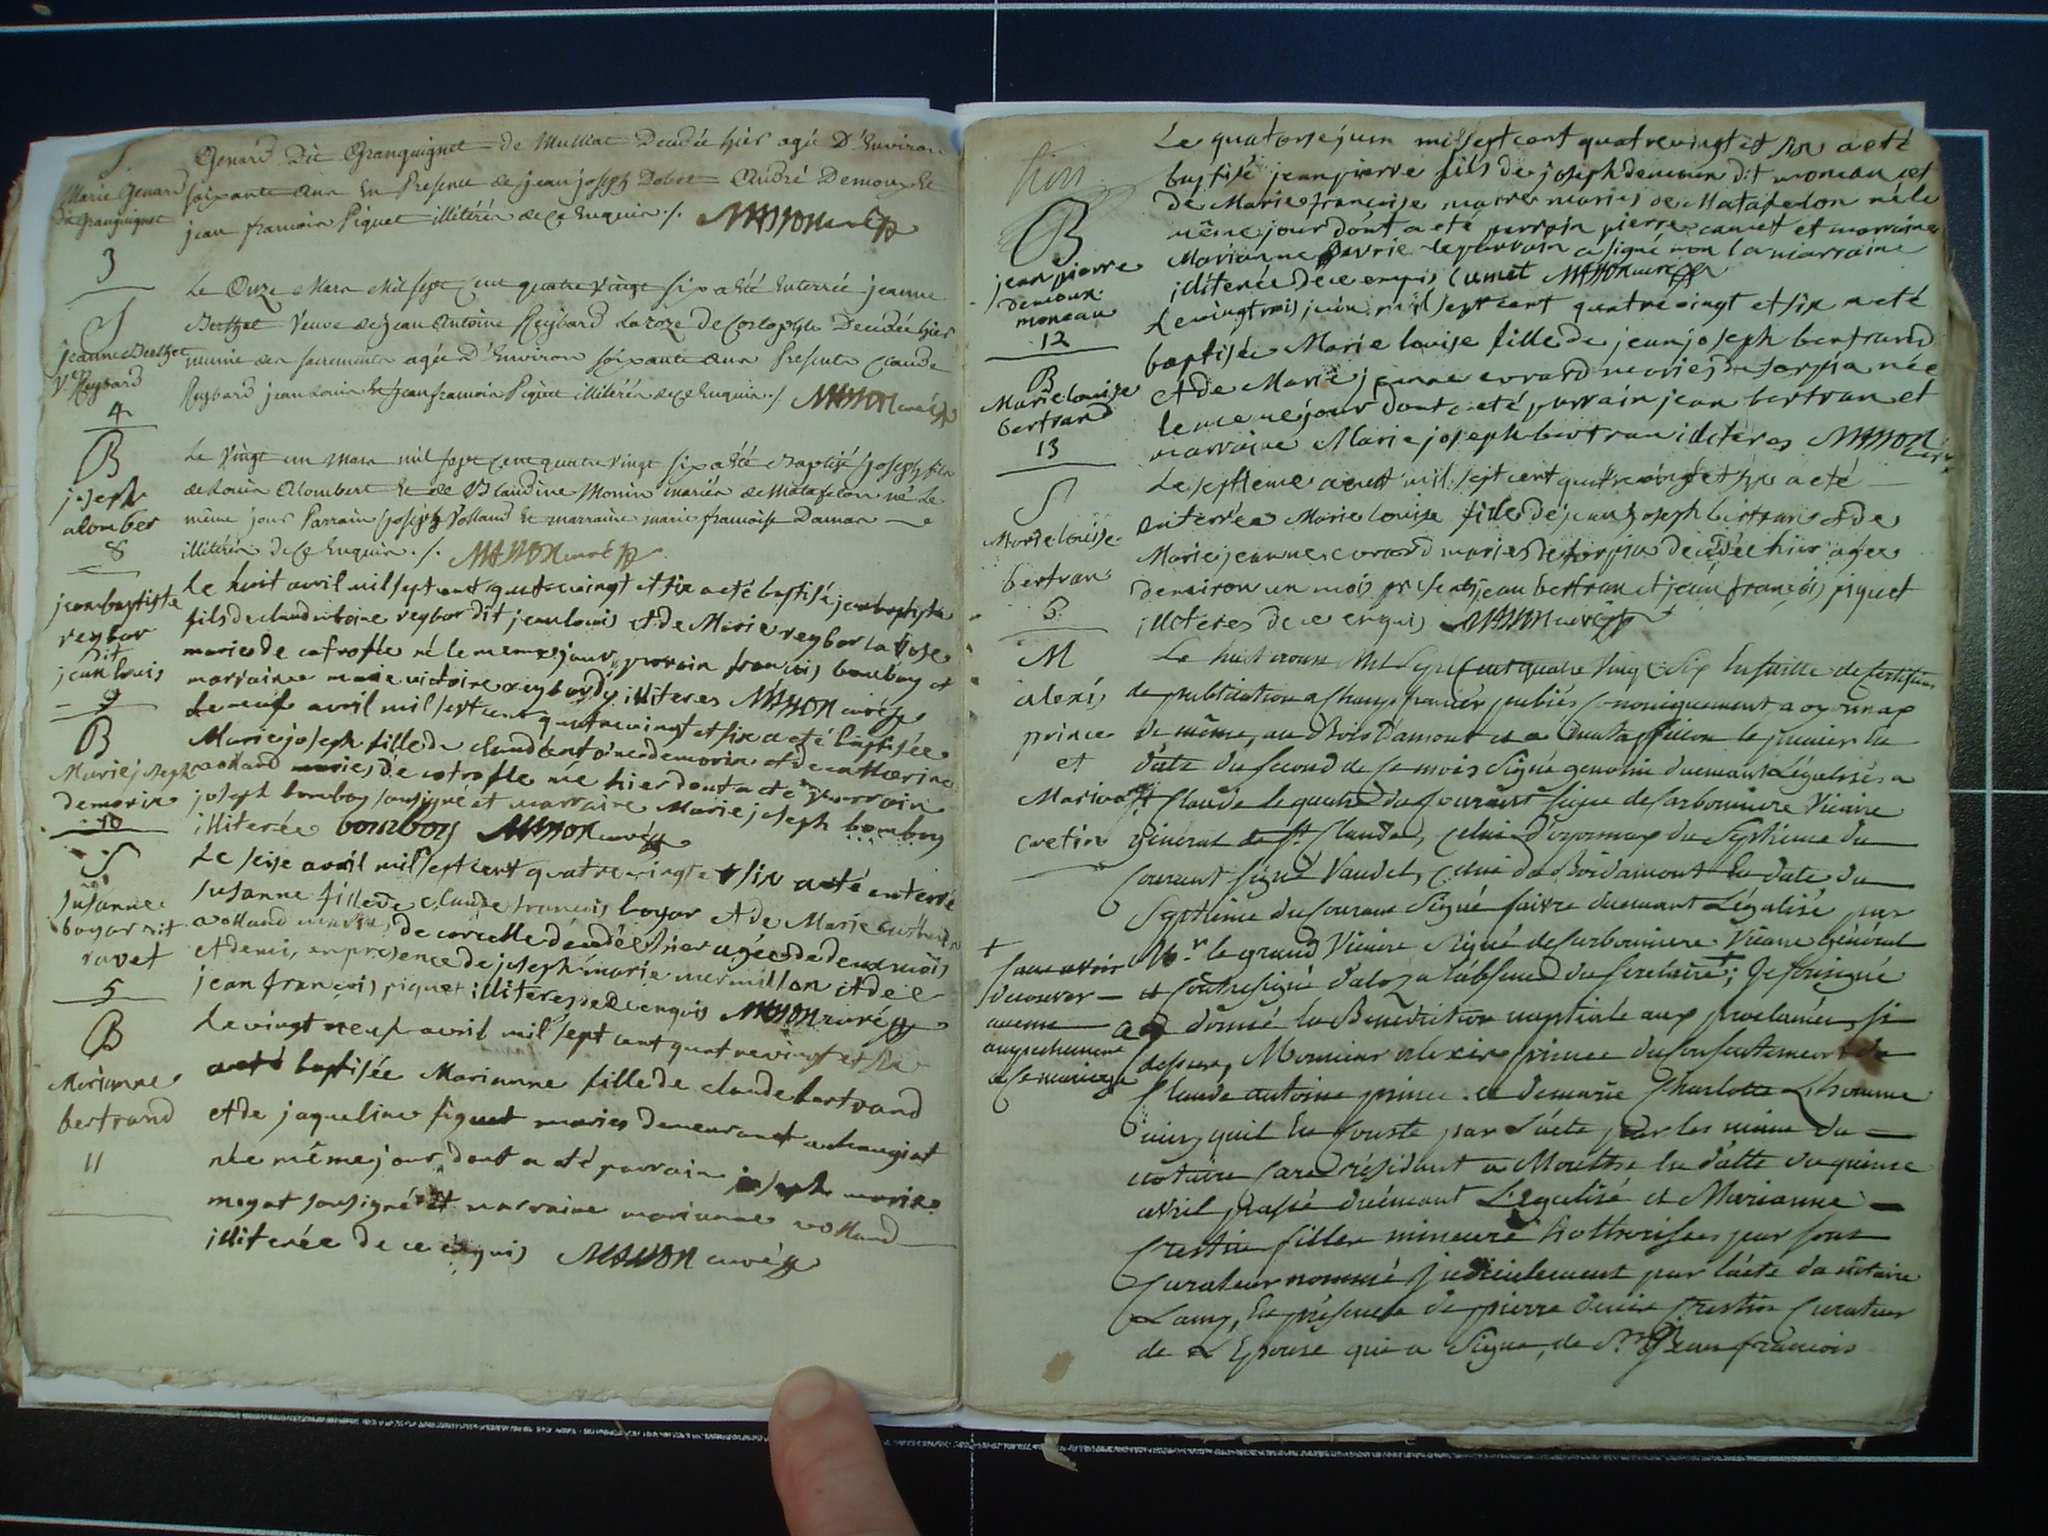 S.
Marie Genard
dit Granguignet
3
Genard Dit Granguignet de Mulliat Decedée hier agée D'Environ
soixante ans En Presence de jean joseph André Demoux Et
jean francois Piquet illiterés de Ce Enquis ./. MASSON curé
S
jeanne Berthet
Vve Reybard
4
Le Onze Mars Mil sept Cent quatre Vingt six a Eté Enterrée jeanne
Berthet Veuve de jean Antoine Reybard Decedée hier
munie des sacrements agée d'Environ soixante ans Presents Claude
Reybard jean Louis Et jean francois Piquet illiterés de Ce Enquis ./. MASSON curé
B
joseph
alomber
8
Le Vingt un Mars mil sept Cent quatre Vingt six a Eté Baptisé joseph fils
de Louis Alombert Et de Claudine Monin mariés de Matafelon né Le
même jour Parrain joseph Volland Et marraine marie francoise Daman
illiterés de Ce Enquis ./. MASSON curé
jeanbaptiste
reybar
dit
jean louis
9
Le huit avril mil sept cent quatrevingt et six a eté baptisé jeanbaptiste
fils de claudantoine reybar dit jean louis et de Marie reybar la rose
mariés de né le meme jour, parrain francois bomboy et
marraine marie victoire illiteres MASSON curé
B
Marie joseph
demorin
10
Le neuf avril mil sept cent quatrevingt et six a eté baptisée
Marie joseph fille de claudantoine demorin et de catherine
volland mariés de née hier dont a eté parrain
joseph bomboy sousigné et marraine Marie joseph bomboy
illiterée bomboy MASSON curé
S
susanne
boyar dit
ravet
5
Le seise avril mil sept cent quatrevingt et six a eté enterré
susanne fille de claude francois boyar et de Marie
volland mariés de corcelle decedée hier agée de deux mois
et demi, en presence de joseph marie murmillon et de
jean francois piquet illiteres de ce enquis MASSON curé
B
Marianne
bertrand
11
Le vingt neuf avril mil sept cent quatrevingt et six
a eté baptisée Marianne fille de claude bertrand
et de jaqueline mariés demeurant a
née même jour dont a eté parrain joseph marie
moyat sousigné et marraine marianne volland
illiterée de ce enquis MASSON curé
B
jean pierre
demoux
moneau
12
Le quatorse juin mil sept cent quatrevingt et six a eté
baptisé jean pierre fils de joseph demoux dit moneau et
de Marie francoise maitre mariés de Matafelon né le
même jour dont a eté parrain pierre camet et marraine
Marianne le parrain a signé non la marraine
illiterée de ce enquis camet MASSON curé
B
Marie louise
bertran
13
Le vingt trois juin mil sept cent quatrevingt et six a eté
baptisée Marie louise fille de jean joseph bertrand
et de Marie jeanne evrard mariés de sorpia née
le meme jour dont a eté parrain jean bertran et
marraine Marie joseph bertran illiteres MASSON curé
S
Marie louise
bertran
6
Le septieme aout mil sept cent quatrevingt et six a eté
enterrée Marie louise fille de jean joseph bertran et de
Marie jeanne evrard mariés de sorpia decedée hier agée
d'environ un mois presents jean bertran et jean francois piquet
illiteres de ce enquis MASSON curé
M
alexis
prince
et
Marianne
cretin
Le huit aoust Mil Sept Cent quatre Vingt Six Ensuitte de Certificats
de publication a Champfromier publiés Canoniquement, a oyonnax
de même, au Bois d'amont et a le premier en
date du Second de Ce mois Signé duement Légalisés a
St Claude le quatre du Courant Signé de Carbonniere Vicaire
Général de St Claude, celui d'oyonnax du Septieme du
Courant Signé Vaudet, Celui du Boisdamont En date du
Septieme du Courant Signé faivre duement Légalisé par
Mr. le grand Vicaire Signé de Carbonniere Vicaire Général
et Contresigné a l'absence du Secretaire +; Je Sousigné
+
Sans avoir
decouver
aucun
empechement
a ce mariage
ai donné la Bénédiction nuptiale aux proclamés si
dessus, Monsieur alexis prince du Consentement de
Claude antoine prince et de marie Charlotte Lhomme
ainsy quil En Conste par l'acte par les mains du
notaire Caré résidant a Mouthe En datte du quinse
avril passé duëment Légalisé et Marianne
Crestin fille mineure authorisée par son
Curateur nommé judicielement par l'acte du notaire
Lamy, En présence de pierre denis Crestin Curateur
de L'Epouse qui a Signé, de Sr. Jean francois